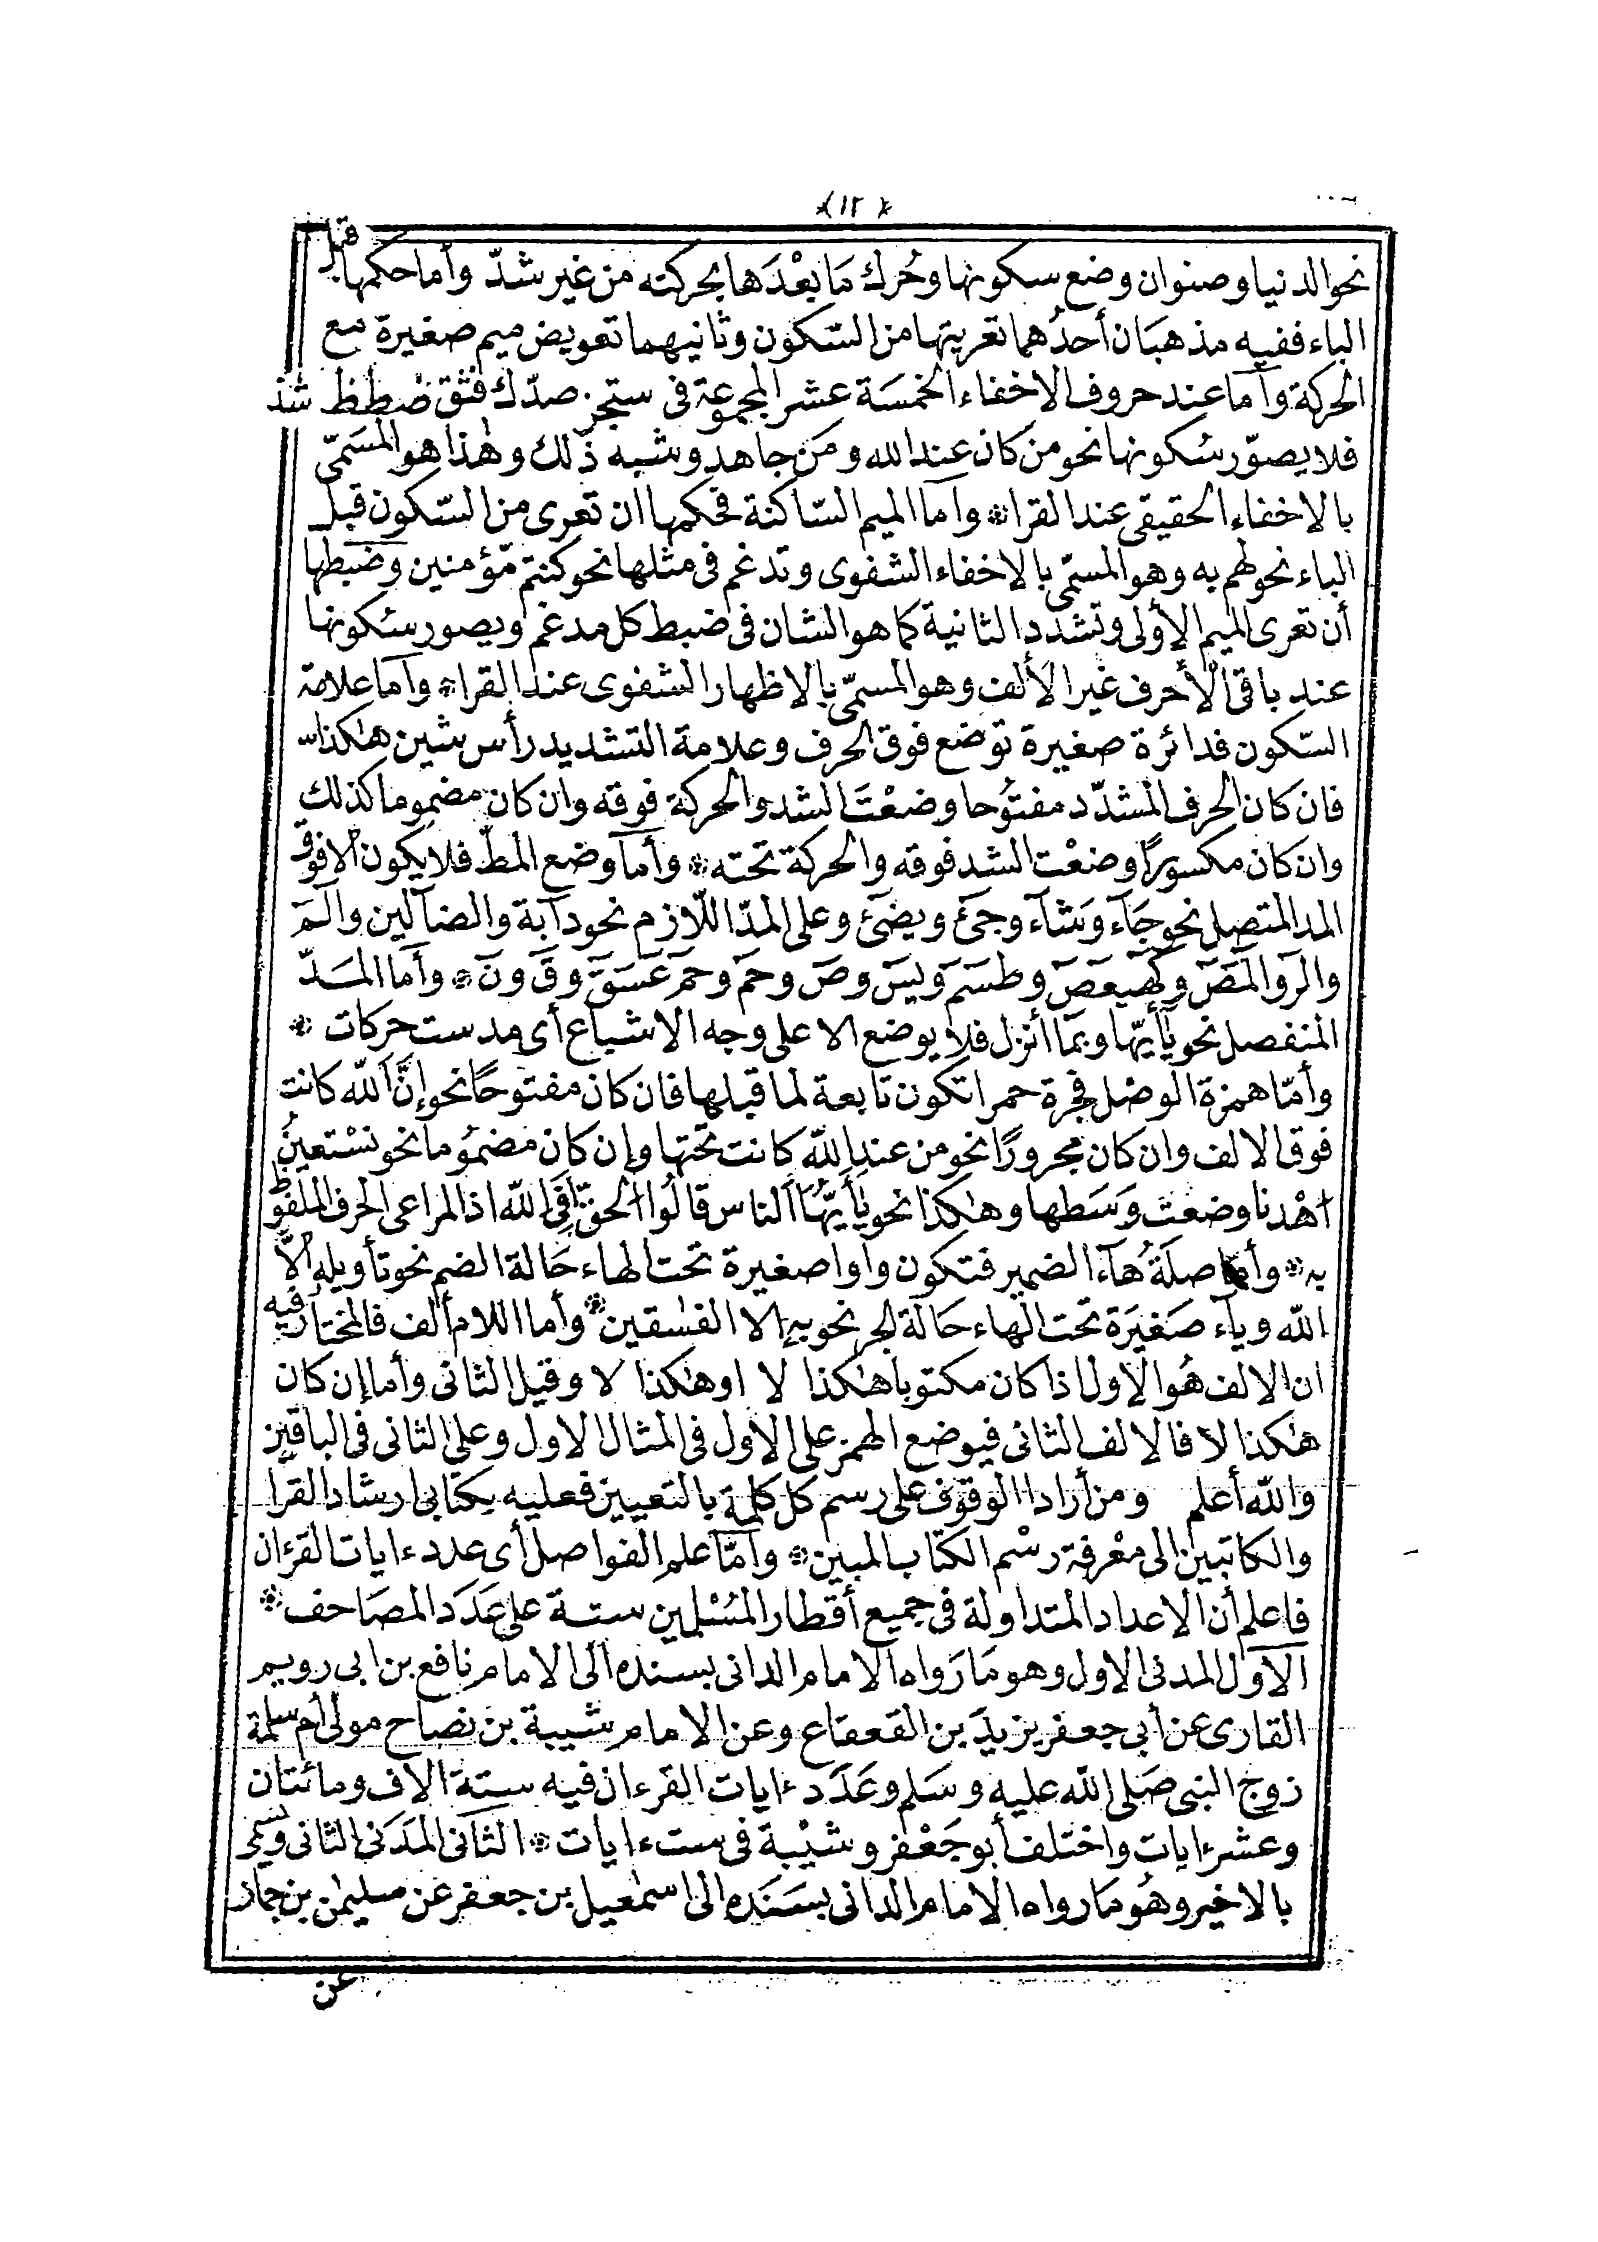 (١٢)
نحو الدنيا وصنوان وضع سكونها وحُرك مَا بعْدَها بحركته من غير شدّ وأما حكمها قبل
الباء ففيه مذهبَان أحدُهما تعريتها من السّكون وثانيهما تعويض ميم صغيرة مع
الحركة وأما عند حروف الاخفاء الخمسَة عشر المجموعة فى ستجز صدّك فثق ضْطظ شذ
فلا يصوّر سُكونها نحو من كان عند الله ومَن جاهد وشبه ذٰلك وهٰذا هو المسَمّى
بالاخفاء الحقيقى عند القرا وأما الميم السّاكنة فحكمها ان تعرى من السّكون قبل
الباء نحو لهم به وهو المسمّى بالاخفاء الشفوى وتدغم فى مثلها نحو كنتم مّؤمنين وضبطها
أن تعرى الميم الأولى وتشدد الثانية كما هو الشان فى ضبط كل مدغم ويصور سُكونها
عند باقى الأحرف غير الألف وهو المسمّى بالاظهار الشفوى عند القرا وأما علامة
السّكون فدائرة صغيرة توضع فوق الحرف وعلامة التشديد رأس شين هٰكذا ّ
فان كان الحرف المشدّد مفتوُحا وضعْتَ الشد والحركة فوقه وان كان مضموما كذلك
وان كان مكسورًا وضعْت الشد فوقه والحركة تحته وأما وضع المطّ فلا يكون الا فوق
المد المتصل نحو جَآء وَشَآء وجىٓئ ويضىٓئ وعلى المدّ اللّازم نحو دآبة والضآلين والٓمٓ
والٓر والٓمٓصٓ وكٓهيعٓصٓ وطسٓمٓ ويسٓ وصٓ وحمٓ وحمٓ عٓسٓقٓ وقٓ ونٓ وأما المَدّ
المنفصل نحو يٰٓأيّها وبمآ أنزل فلا يوضع الا على وجه الاشباع أى مد ست حركات
وأمّا همزة الوصْل فجرة حمرا تكون تابعة لما قبلها فان كان مفتوحًا نحو إنَّ اَللّه كانت
فوق الالف وان كان مجرورًا نحو من عندِ اللّه كانت تحتها وإن كان مضمُوما نحو نسْتعينُ
اهْدنا وضعتَ وَسَطها وهٰكذا نحو يٰٓأيّهُا اَلناس قالُوا الحقّ أفِى اللّه اذ المراعى الحرف الملفوظ
به وأما صلَةُ هَآء الضمير فتكون واوا صغيرة تحت الهاء حَالة الضم نحو تأويله الاَّ
اللّه ويآء صَغيَرة تحت الهاء حَالة الجر نحو بهۦ إلا الفٰسقين وأما اللام ألف فالمختار فيه
ان الالف هُو الاول اذا كان مكتوبا هٰكذا لا او هٰكذا لا وقيل الثانى وأما إن كان
هٰكذا لا فالالف الثانى فيوضع الهمز على الاول فى المثال الاول وعلى الثانى فى الباقين
واللّه أعلم ومن أراد الوقوف على رسم كل كلمة بالتعيين فعليه بكتابى ارشاد القرا
والكاتبين الى معْرفة رسْم الكتاب المبين وأمّا علم الفواصل أى عدد ءايات القرءان
فاعلم أن الاعداد المتداولة فى جميع أقطار المسُلمين ستة على عَدَد المصَاحف
الأول المدنى الاول وهو مَا رَواه الامام الدانى بسنده الى الامام نافع بن ابى رويم
القارى عن أبى جعفر يزيدَ بن القعقاع وعن الامام شيبة بن نصاح مولى أم سلمة
زوج النبى صَلى اللّه عليه وسَلم وعَدَد ءايات القرءان فيه ستة الاف ومائتان
وعشر ءايات واختلف أبو جَعْفر وشيْبة فى ست ءايات الثانى المدَنى الثانى ويسمى
بالاخير وهُو مَا رواه الامام الدانى بسَنَده الى اسمٰعيل بن جعفر عن سليمٰن بن جماز
عن